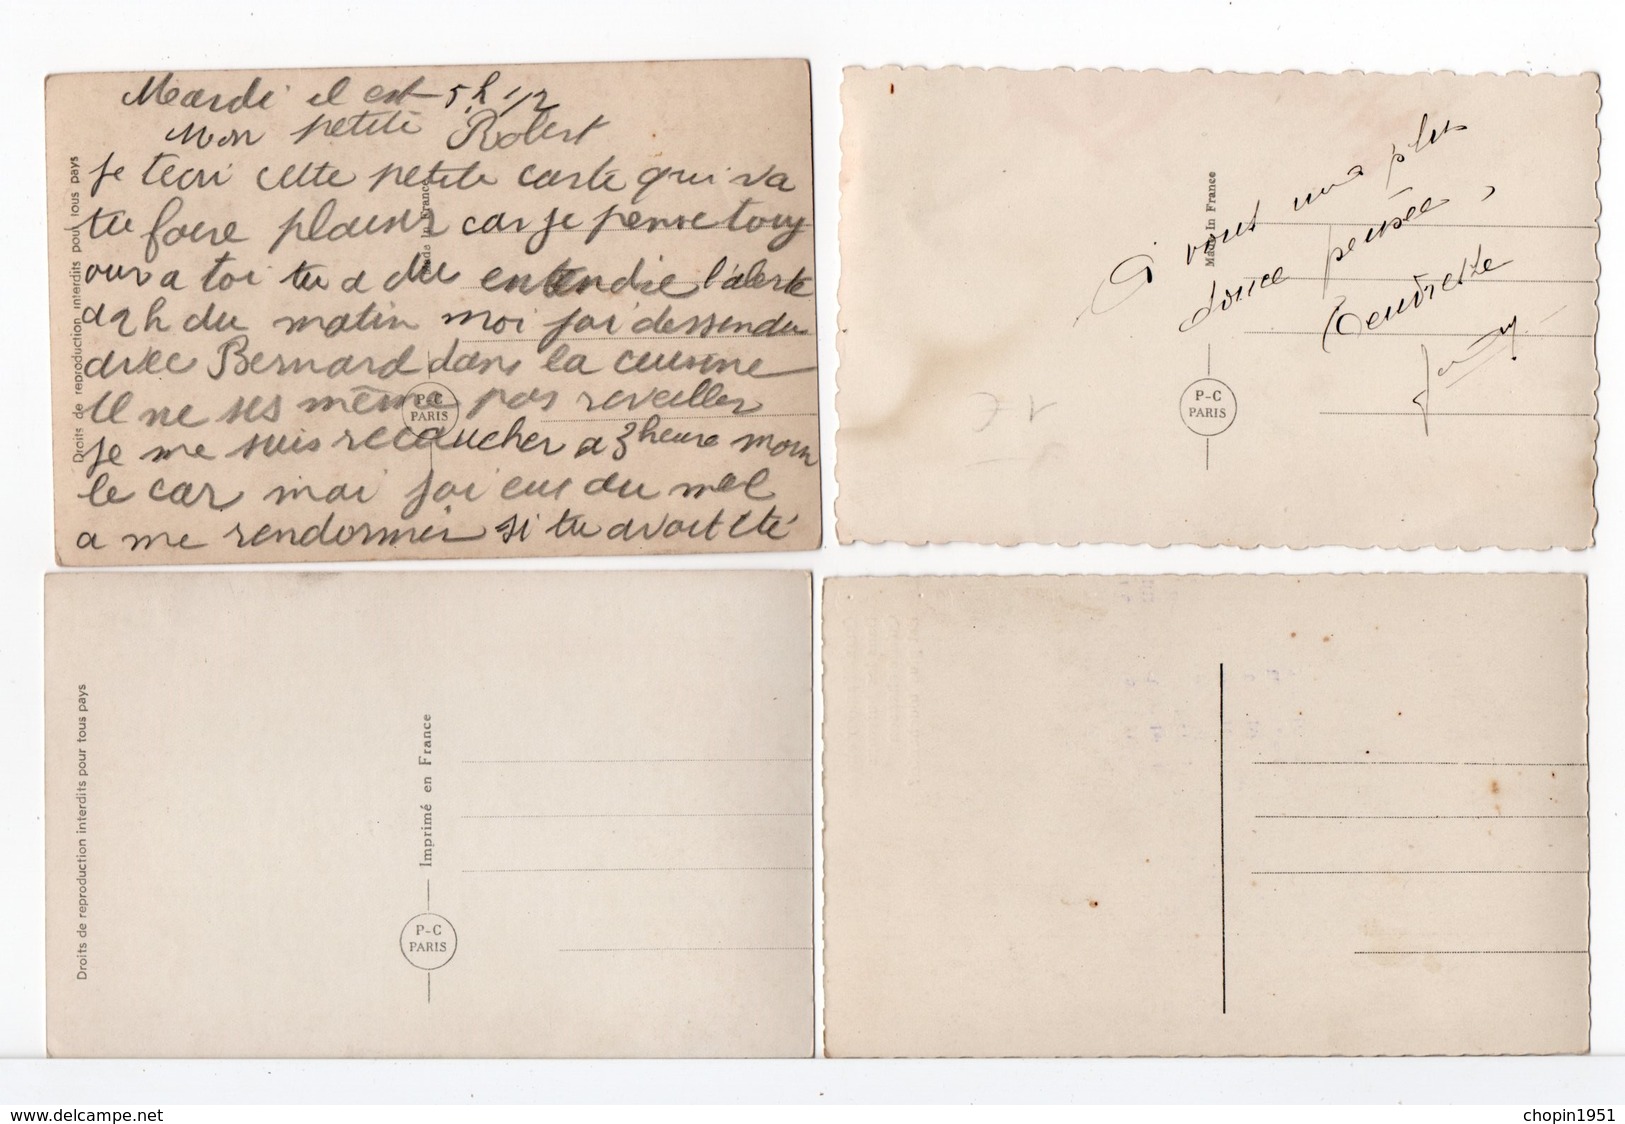 Mardi il est 5h 1/2
Mon petite Robert
Je tecri cette petite carte qui va
tu faire plaisir car je pense touj
ours a toi tu a du entendre l'alerte
a 2h du matin moi jai dessendu
avec Bernard dans la cuisine
Il ne ses même pas reveiller
je me suis recoucher a 3 heure moin
le car moi jai eus du mal
a me rendormir si tu avait été
Droits de reproduction interdits pour tous pays
Made in France
P-C
PARIS
A vous ma plus
douce pensée,
Tendresse
Made in France
P-C
PARIS
Droits de reproduction interdits pour tous pays
Imprimé en France
P-C
PARIS
www.delcampe.net
chopin1951